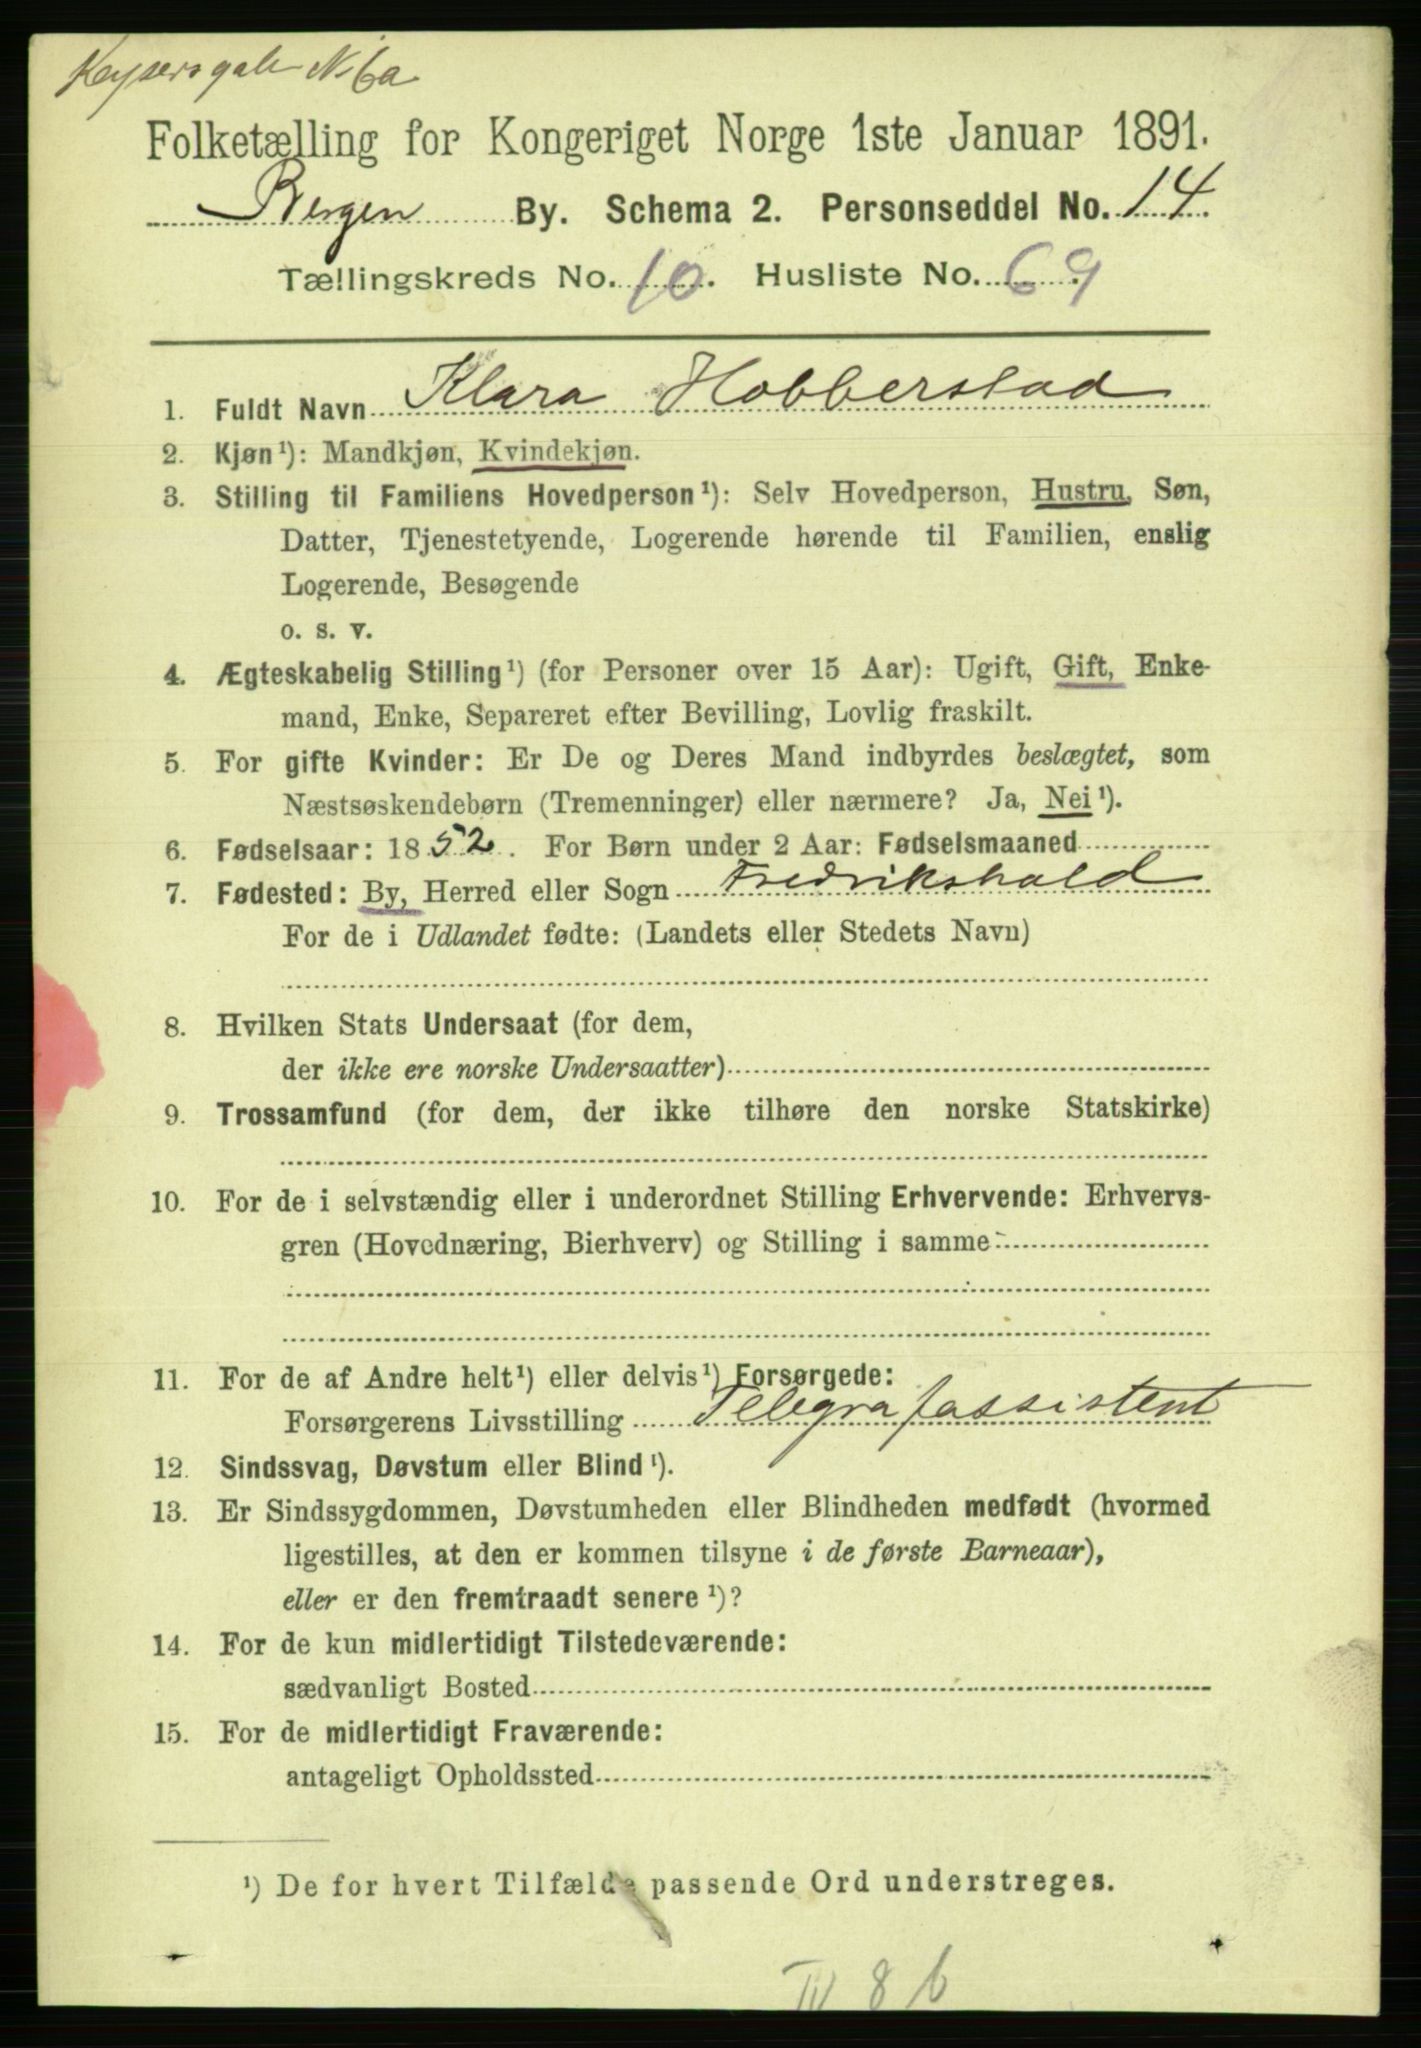 Keysersgate No 6a
Folketælling for Kongeriget Norge 1ste Januar 1891.
Bergen By. Schema 2. Personseddel No. 14.
Tællingskreds No. 10. Husliste No. 69
1. Fuldt Navn Klara Hobberstad
2. Kjøn¹): Mandkjøn, Kvindekjøn.
3. Stilling til Familiens Hovedperson¹): Selv Hovedperson, Hustru, Søn,
Datter, Tjenestetyende, Logerende hørende til Familien, enslig
Logerende, Besøgende
o. s. v.
4. Ægteskabelig Stilling¹) (for Personer over 15 Aar): Ugift, Gift, Enke-
mand, Enke, Separeret efter Bevilling, Lovlig fraskilt.
5. For gifte Kvinder: Er De og Deres Mand indbyrdes beslægtet, som
Næstsøskendebørn (Tremenninger) eller nærmere? Ja, Nei¹).
6. Fødselsaar: 1852. For Børn under 2 Aar: Fødselsmaaned
7. Fødested: By, Herred eller Sogn Fredrikshald
For de i Udlandet fødte: (Landets eller Stedets Navn)
8. Hvilken Stats Undersaat (for dem,
der ikke ere norske Undersaatter)
9. Trossamfund (for dem, der ikke tilhøre den norske Statskirke)
10. For de i selvstændig eller i underordnet Stilling Erhvervende: Erhvervs-
gren (Hovednæring, Bierhverv) og Stilling i samme
11. For de af Andre helt¹) eller delvis¹) Forsørgede:
Forsørgerens Livsstilling Telegrafassistent
12. Sindssvag, Døvstum eller Blind¹).
13. Er Sindssygdommen, Døvstumheden eller Blindheden medfødt (hvormed
ligestilles, at den er kommen tilsyne i de første Barneaar),
eller er den fremtraadt senere¹)?
14. For de kun midlertidigt Tilstedeværende:
sædvanligt Bosted
15. For de midlertidigt Fraværende:
antageligt Opholdssted
¹) De for hvert Tilfælde passende Ord understreges.
IV 8 b